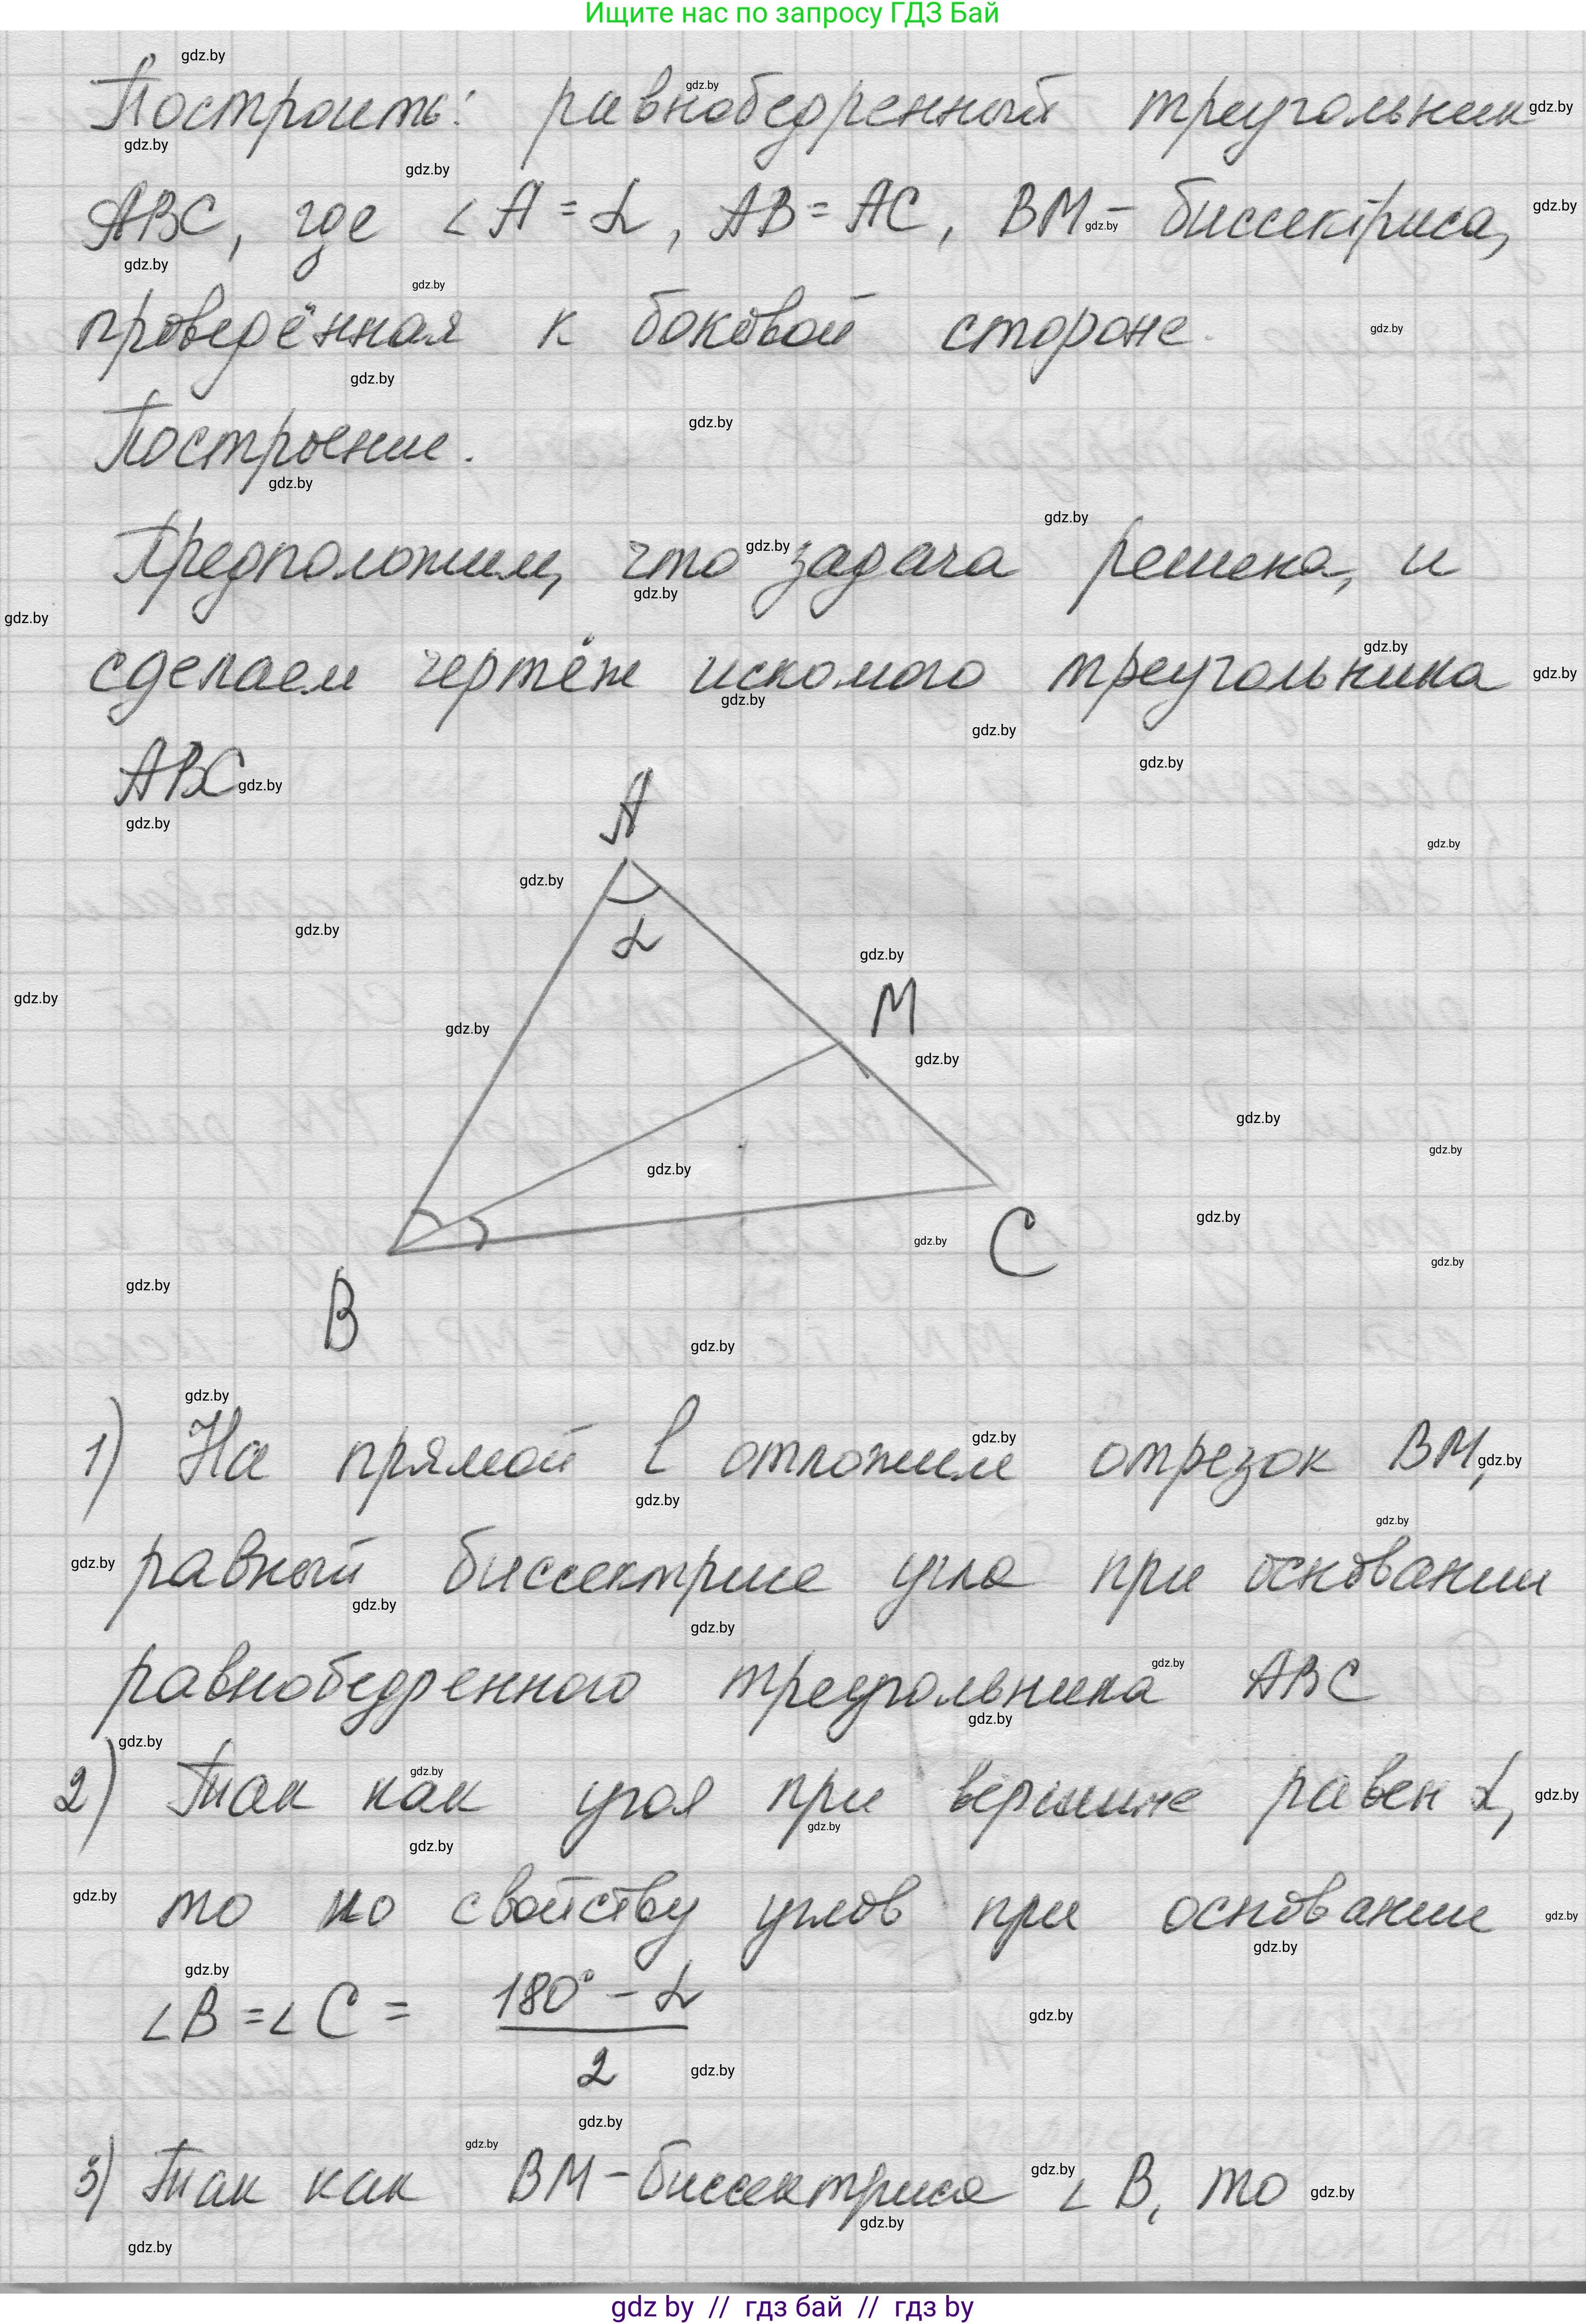 Ищите нас по запросу ГДЗ Бай
Построить: равнобедренный треугольник
ABC, где ∠A = α, AB = AC, BM - биссектриса,
проведённая к боковой стороне.
Построение.
Предположим, что задача решена, и
сделаем чертёж искомого треугольника
ABC
A
α
M
C
B
1) На прямой l отложим отрезок BM,
равный биссектрисе угла при основании
равнобедренного треугольника ABC
2) Так как угол при вершине равен α,
то по свойству углов при основании
∠B = ∠C = (180° - α) / 2
3) Так как BM - биссектриса ∠B, то
gdz by // гдз бай // гдз by